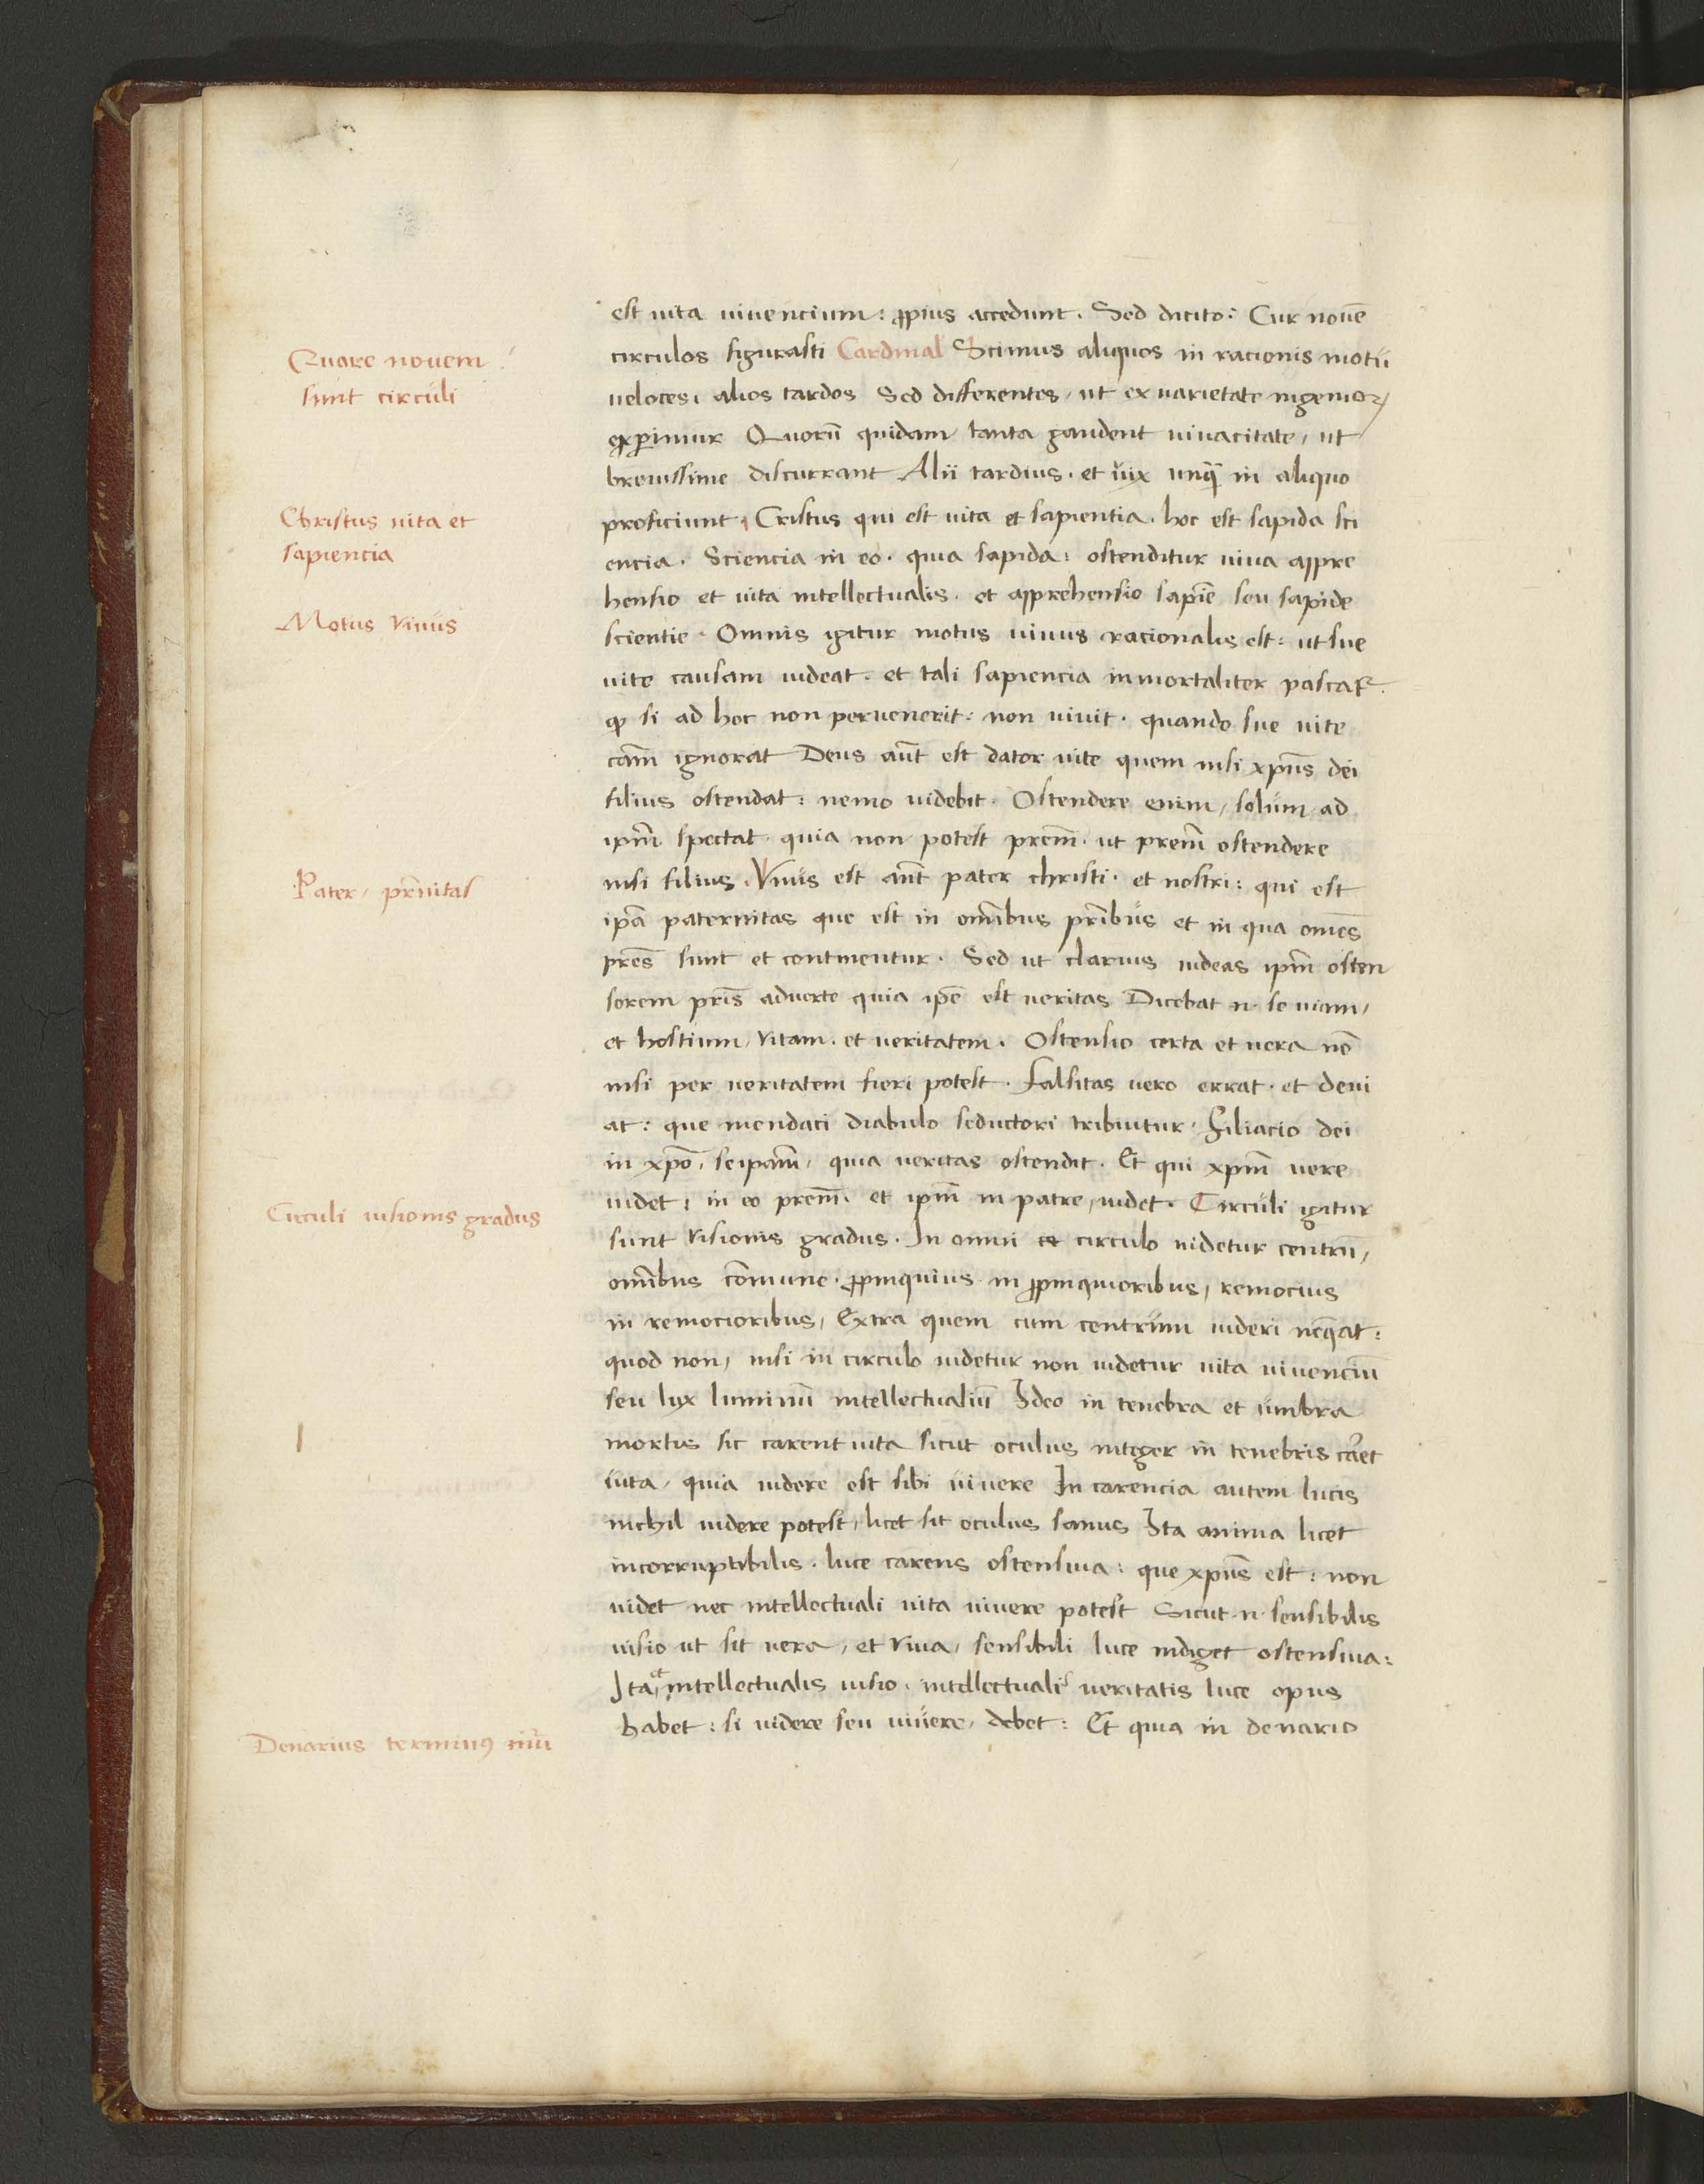 est vita viuencium: ꝓpius accedunt. Sed dicito: Cur nouē
circulos figurasti Cardinal Scimus aliquos in racionis motū
Quare nouem
sunt circuli
ueloces, alios tardos Sed differentes, ut ex uarietate ingenioꝝ
exꝑimur Quorū quidam tanta gaudent uiuacitate, ut
breuissime discurrant Alii tardius. et uix unqᷓ in aliquo
Christus uita et
sapiencia
proficiunt, Cristus qui est uita et sapientia. hoc est sapida sci
encia. Sciencia in eo. quia sapida: ostenditur uiua appre
hensio et uita intellectualis. et apprehensio sapiē seu sapide
Motus viuus
scientie. Omnis igitur motus uiuus racionalis est: ut sue
uite causam uideat. et tali sapiencia inmortaliter pascat᷑.
ꝙ si ad hoc non peruenerit: non uiuit. quando sue uite
cām ignorat Deus aūt est dator uite quem nisi xp̄us dei
filius ostendat: nemo uidebit. Ostendere enim, solum ad
ip̄m spectat. quia non potest pr̄em. ut pr̄em ostendere
Pater, pr̄nitas
nisi filius. Vnus est aūt pater christi. et nostri: qui est
ip̄a paternitas que est in om̄ibus pr̄ibus et in qua om̄es
pr̄es sunt et continentur. Sed ut clarius uideas ip̄m osten
sorem pr̄is aduerte quia ip̄e est ueritas Dicebat .n. se uiam,
et hostium, vitam. et ueritatem. Ostensio certa et uera nō
nisi per ueritatem fieri potest. Falsitas uero errat. et deui
at: que mendaci diabulo seductori tribuitur. Filiacio dei
in xp̄o, seip̄am, quia ueritas ostendit. Et qui xp̄m uere
Circuli uisionis gradus
uidet: in eo pr̄em. et ip̄m in patre, uidet. Circuli igitur
sunt visionis gradus. In omni circulo uidetur centrū,
om̄ibus cōmune. ꝓpinquius in ꝓpinquioribus, remocius
in remocioribus, Extra quem cum centrum uideri neq̄at:
quod non, nisi in circulo uidetur non uidetur uita uiuenciū
seu lux luminū intellectualiū Ideo in tenebra et umbra
mortis sic carent uita sicut oculus integer in tenebris cāet
uita, quia uidere est sibi uiuere In carencia autem lucis
nichil uidere potest, licet sit oculus sanus Ita anima licet
incorruptibilis. luce carens ostensiua: que xp̄us est: non
uidet nec intellectuali uita uiuere potest Sicut .n. sensibilis
uisio ut sit uera, et viua, sensibili luce indiget ostensiua:
Ita et intellectualis uisio. intellectualis ueritatis luce opus
Denarius terminꝰ nūi
habet: si uidere seu uiuere, debet: Et quia in denario